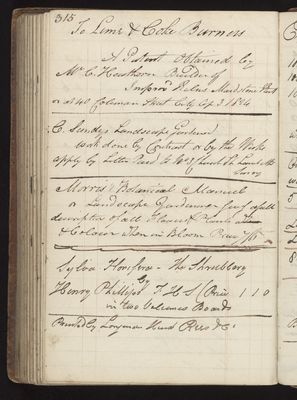 315
To Lime & Coke Burners
A Patent Obtained by
Mr. C. Heathorn Builder of
Maidstone Kent
or at 40 Coleman Street City Sep. 3 1824
C. Sandys Landscape Gardener
work done by Contract or by the Week
apply by Letter
Surrey
Morris's Botanical Manual
or Landscape Gardener
description of all Flowers
& Colour when in Bloom Price 7/6
Sylva Florifera - The Shrubbery
By
Henry Phillips F H S (Price 1 1 0
in two Volumes Boards
Printed by Longman Hurst Rees & Co